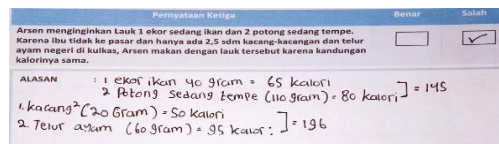 Pernyataan Ketiga Benar Salah
Arsen menginginkan Lauk 1 ekor sedang ikan dan 2 potong sedang tempe.
Karena ibu tidak ke pasar dan hanya ada 2,5 sdm kacang-kacangan dan telur
ayam negeri di kulkas, Arsen makan dengan lauk tersebut karena kandungan
kalorinya sama.
ALASAN : 1 ekor ikan 40 gram = 65 kalori
2 Potong Sedang tempe (110 gram) = 80 kalori ] = 145
1. kacang² (20 Gram) = 50 kalori
2. Telur ayam (60 gram) = 95 kalori ] = 196